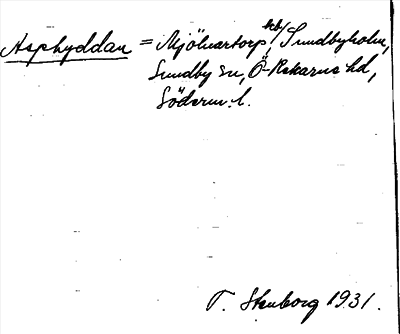 Asphyddan = Mjölnartorp, tvb/ Sundbyholm,
Sundby sn, Ö-Rekarne hd,
Söderm. l.
T. Stenborg 1931.